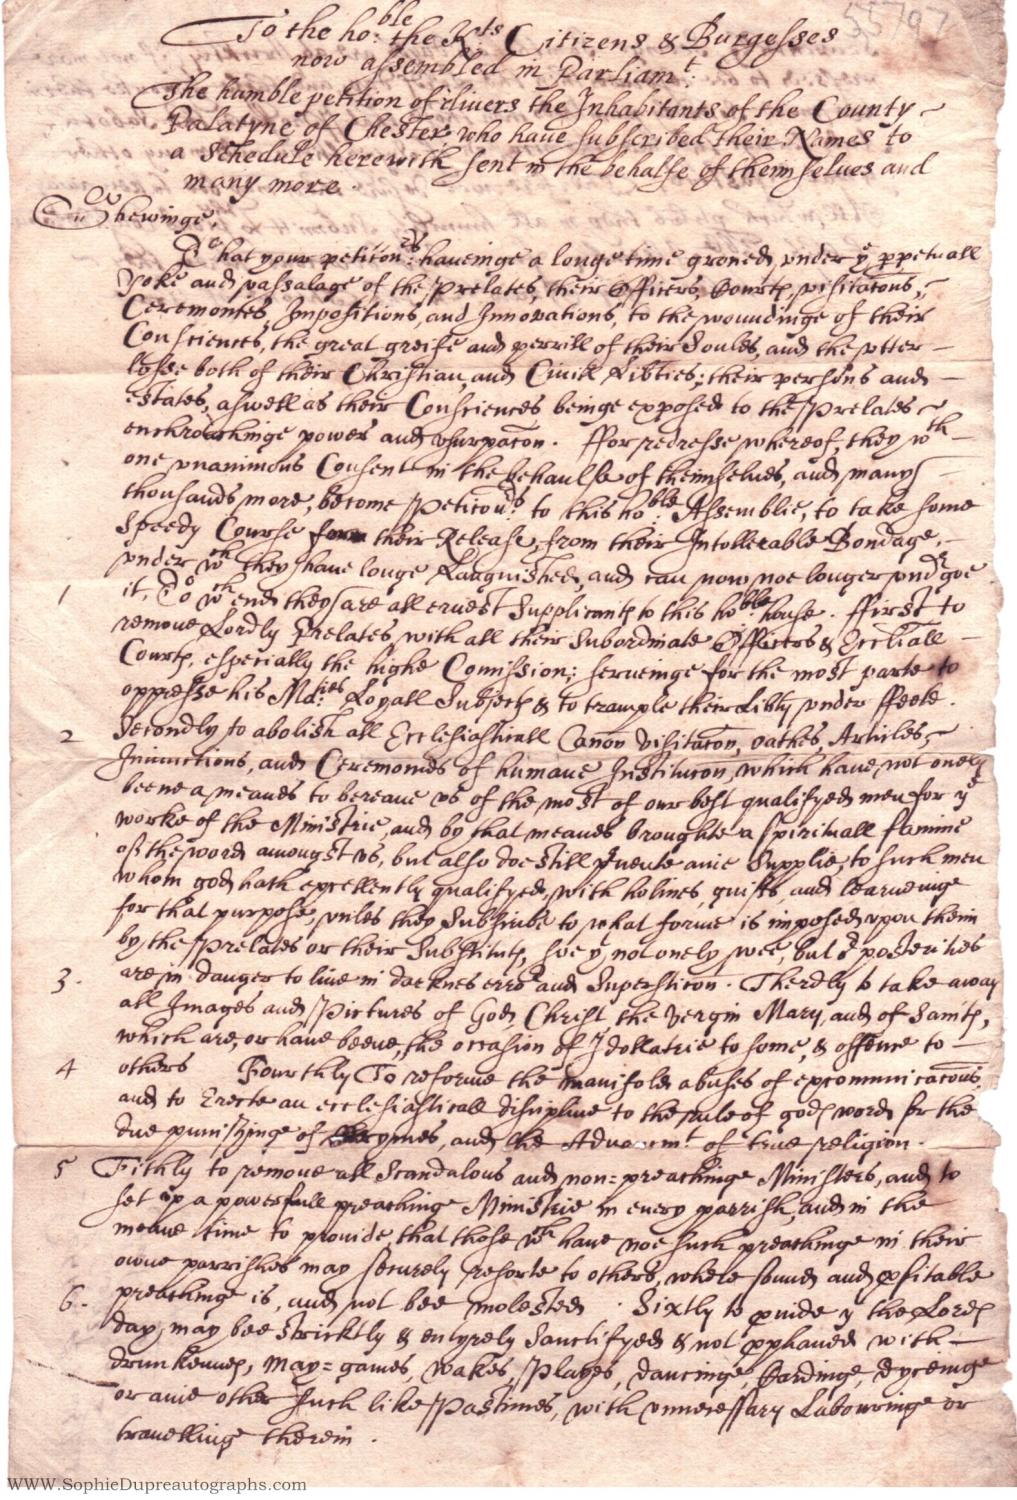 55797
To the ho:ble the Kts Citizens & Burgesses
now assembled in Parliamt:
The humble petition of divers the Inhabitants of the County
Palatyne of Chester who have subscribed their Names to
a Schedule herewith sent in the behalfe of themselves and
many more.
Shewinge,
That your petitonrs: haveinge a longe time groned under ye ppetuall
Yoke and vassalage of the Prelates, their Officers, Courts, visitatons,
Ceremonies, Impositions, and Innovations, to the woundinge of their
Consciences, the great greife and perrill of their Soules, and the utter
losse both of their Christian, and Civill Libties; their persons and
estates, aswell as their Consciences beinge exposed to the Prelates
enchroachinge power and usurpaton. ffor redresse whereof, they wth
one unanimous Consent in the behaulfe of themselves, and many
thousands more, become Petitonrs: to this ho:ble Assemblie, to take some
Speedy Course for their Release, from their Intollerable Bondage,
under wch they have longe Languished, and can now noe longer undrgoe
1 it, To wch end they are all ernest Supplicants to this ho:ble house. ffirst to
remove Lordly Prelates, with all their Subordinate Officers & Eccliall
Courts, especially the highe Comission; serveinge for the most parte to
oppresse his Ma:ties Loyall Subjects & to trample their Libty under ffoote.
2 Secondly to abolish all Ecclesiasticall Canon Visitaton, oathes, Articles,
Iniunctions, and Ceremonies of humane Institucon, which have not onely
beene a meanes to bereave us of the most of our best qualifyed men for ye
worke of the Ministrie, and by that meanes broughte a spirituall famine
of the word amongst us, but also doe still pvente anie Supplie, to such men
whom god hath excellently qualifyed, with holines, guifts, and learneinge
for that purpose, unles they Subscribe to what forme is imposed upon them
by the Prelates or their Substituts, soe yt not onely wee, but or posterities
3. are in danger to live in darknes error and Superstition. Therdly to take away
all Images and Pictures of God, Christ, the Vergin Mary, and of Saints,
which are, or have beene, the occasion of Idollatrie to some, & offence to
4 others Fourthly To reforme the manifold abuses of excommunicatons,
and to Erecte an ecclesiasticall discipline to the rule of gods word for the
due punishinge of crymes, and the Advancmt of true religion.
5 Fithly to remove all Scandalous and non=preachinge Ministers, and to
set up a powerfull preaching Ministrie in every parrish, and in the
meane time to provide, that those wch have noe such preachinge in their
owne parrishes may securely resorte to others, where sound and pfitable
6. preaching is, and not bee molested. Sixtly to pvide yt the Lords
day, may bee stricktly & entyrely Sanctifyed & not pphaned with
drunkennes, may=games, wakes, Playes, dancinge, Cardinge, dyceinge
or anie other such like Pastimes, with unnecessary Labouringe or
travelling therein.
WWW.SophieDupreautographs.com